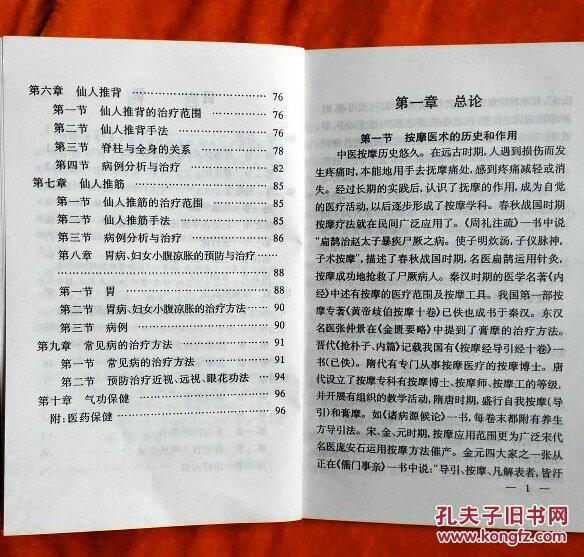 第六章 仙人推背 …………………… 76
第一节 仙人推背的治疗范围 …………… 76
第二节 仙人推背手法 …………… 76
第三节 脊柱与全身的关系 …………… 78
第四节 病例分析与治疗 …………… 82
第七章 仙人推筋 …………………… 85
第一节 仙人推筋的治疗范围 …………… 85
第二节 仙人推筋手法 …………… 85
第三节 病例分析与治疗 …………… 86
第八章 胃病、妇女小腹凉胀的预防与治疗 ……
…………………… 88
第一节 胃 …………………… 88
第二节 胃病、妇女小腹凉胀的治疗方法 …… 90
第三节 病例 …………………… 90
第九章 常见病的治疗方法 …………… 91
第一节 常见病的治疗方法 …………… 91
第二节 预防治疗近视、远视、眼花功法 …… 94
第十章 气功保健 …………………… 96
附:医药保健 …………………… 96
第一章 总论
第一节 按摩医术的历史和作用
中医按摩历史悠久。在远古时期,人遇到损伤而发
生疼痛时,本能地用手去抚摩痛处,感到疼痛减轻或消
失。经过长期的实践后,认识了抚摩的作用,成为自觉
的医疗活动,以后逐步形成了按摩学科。春秋战国时期
按摩疗法就在民间广泛应用了。《周礼注疏》一书中说
“扁鹊治赵太子暴疾尸厥之病。使子明炊汤,子仪脉神,
子术按摩”,描述了春秋战国时期,名医扁鹊运用针灸、
按摩成功地抢救了尸厥病人。秦汉时期的医学名著《内
经》中述有按摩的医疗范围及按摩工具。我国第一部按
摩专著《黄帝歧伯按摩十卷》已佚也成书于秦汉。东汉
名医张仲景在《金匮要略》中提到了膏摩的治疗方法。
晋代《抱朴子、内篇》记载我国有《按摩经导引经十卷》一
书(已佚)。隋代有专门从事按摩医疗的按摩博士。唐
代设立了按摩专科有按摩博士、按摩师、按摩工的等级,
并开展有组织的教学活动,隋唐时期,盛行自我按摩(导
引)和膏摩。如《诸病源候论》一书,每卷末都附有养生
方导引法。宋、金、元时期,按摩应用范围更为广泛宋代
名医庞安石运用按摩方法催产。金元四大家之一张从
正在《儒门事亲》一书中说:“导引、按摩、凡解表者,皆汗
— 1 —
孔夫子旧书网